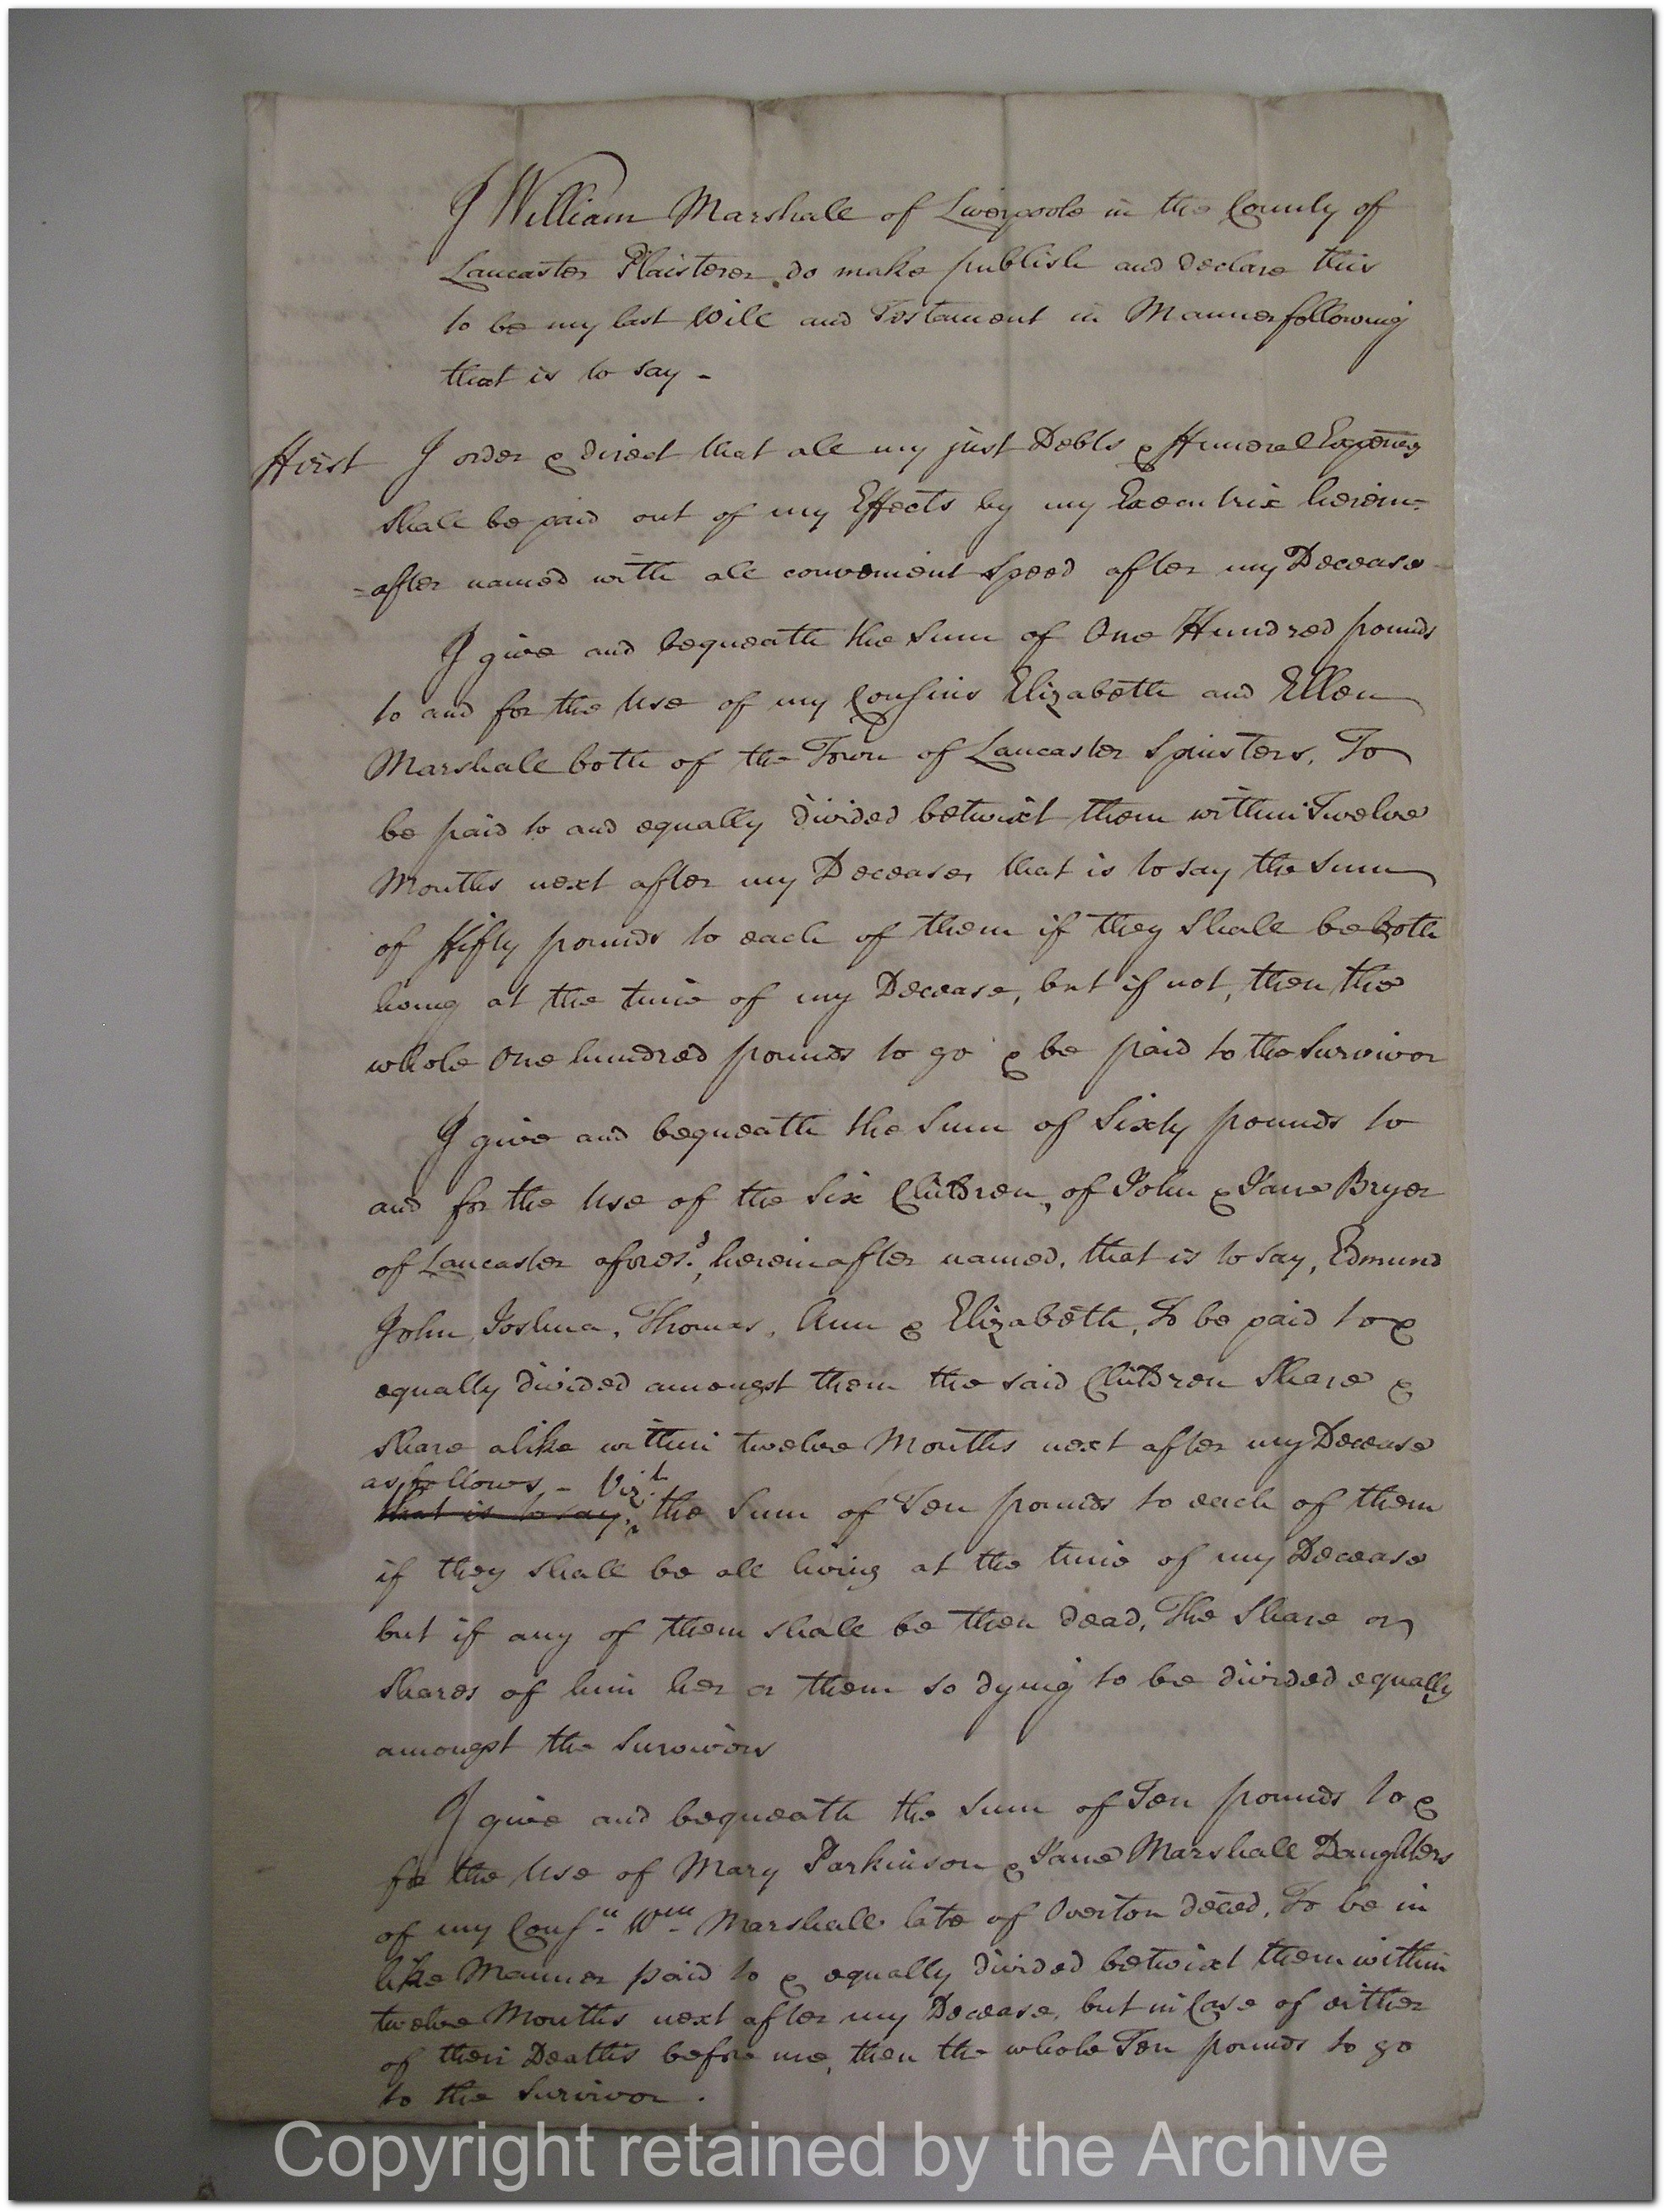 I William Marshall of Liverpoole in the County of
Lancaster Plaisterer do make publish and declare this
to be my last Will and Testament in Manner following
that is to say -
First I order & direct that all my just Debts & Funeral Expences
shall be paid out of my Effects by my Executrix herein=
=after named with all convenient Speed after my Decease
I give and bequeath the Sum of One Hundred pounds
to and for the Use of my Cousins Elizabeth and Ellen
Marshall both of the Town of Lancaster Spinsters, To
be paid to and equally divided betwixt them within Twelve
Months next after my Decease, that is to say the Sum
of Fifty pounds to each of them if they shall be both
living at the time of my Decease, but if not, then the
whole One hundred pounds to go & be paid to the Survivor
I give and bequeath the Sum of Sixty pounds to
and for the Use of the Six Children, of John & Jane Bryer
of Lancaster afores.d, hereinafter named, that is to say, Edmund
John, Joshua, Thomas, Ann & Elizabeth, To be paid to &
equally divided amongst them the said Children Share &
share alike within twelve Months next after my Decease
as follows, - Viz.t
that is to say, the Sum of Ten pounds to each of them
if they shall be all living at the time of my Decease
but if any of them shall be then dead, The Share or
Shares of him her or them so dying to be divided equally
amongst the Survivors
I give and bequeath the Sum of Ten pounds to &
for the Use of Mary Parkinson & Jane Marshall Daughters
of my Cousn Wm Marshall late of Overton deced, To be in
like Manner paid to & equally divided betwixt them within
twelve Months next after my Decease, but in Case of either
of their Deaths before me, then the whole Ten pounds to go
to the Survivor .
Copyright retained by the Archive